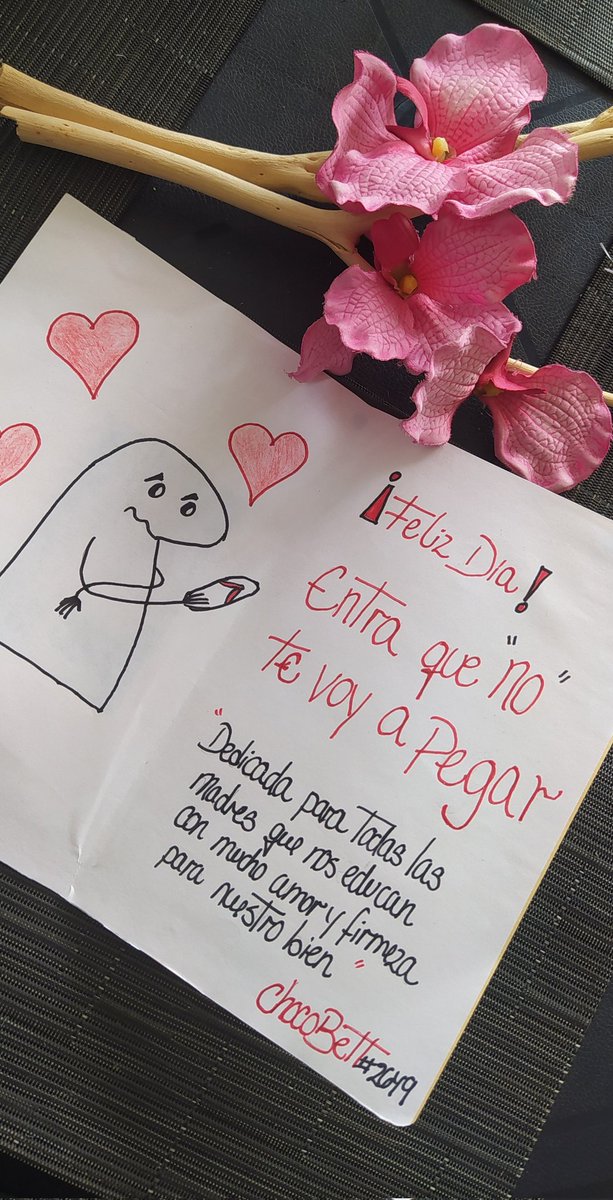 ¡Feliz Día!
Entra que "no"
te voy a Pegar
"Dedicada para todas las
madres que nos educan
con mucho amor y firmeza
para nuestro bien"
ChocoBett#2649